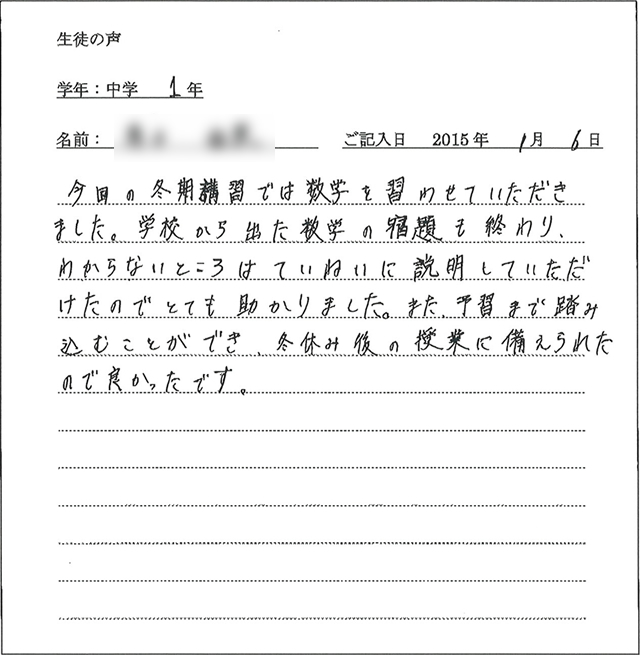 生徒の声
学年：中学 1年
名前： ご記入日 2015年 1月 6日
今回の冬期講習では数学を習わせていただき
ました。学校から出た数学の宿題も終わり、
わからないところはていねいに説明していただ
けたのでとても助かりました。また、予習まで踏み
込むことができ、冬休み後の授業に備えられた
ので良かったです。